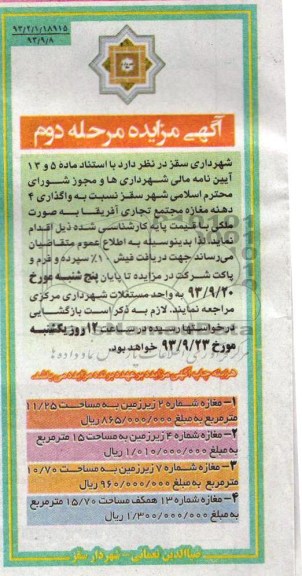 ۹۳/۲/۱/۱۸۹۱۵
۹۳/۹/۸
آگهی مزایده مرحله دوم
شهرداری سقز در نظر دارد با استناد ماده ۵ و ۱۳
آیین نامه مالی شهرداری ها و مجوز شورای
محترم اسلامی شهر سقز نسبت به واگذاری ۴
دهنه مغازه مجتمع تجاری آفریقا به صورت
ملکی با قیمت پایه کارشناسی شده ذیل اقدام
نماید. لذا بدینوسیله به اطلاع عموم متقاضیان
می‌رساند جهت دریافت فیش ۱۰٪ سپرده و فرم و
پاکت شرکت در مزایده تا پایان پنج شنبه مورخ
۹۳/۹/۲۰ به واحد مستغلات شهرداری مرکزی
مراجعه نمایند. لازم به ذکر است بازگشایی
درخواستها رسیده در ساعت ۱۲ روز یکشنبه
مورخ ۹۳/۹/۲۳ خواهد بود.
هزینه چاپ آگهی مزایده بر عهده برنده مزایده می‌باشد.
۱- مغازه شماره ۲ زیرزمین به مساحت ۱۱/۲۵
مترمربع به مبلغ ۸۶۵/۰۰۰/۰۰۰ ریال
۲- مغازه شماره ۴ زیرزمین به مساحت ۱۵ مترمربع
به مبلغ ۱/۰۱۰/۰۰۰/۰۰۰ ریال
۳- مغازه شماره ۷ زیرزمین به مساحت ۱۰/۷۰
مترمربع به مبلغ ۹۶۰/۰۰۰/۰۰۰ ریال
۴- مغازه شماره ۱۳ همکف مساحت ۱۵/۷۰ مترمربع
به مبلغ ۱/۳۰۰/۰۰۰/۰۰۰ ریال
ضیاالدین نعمانی - شهردار سقز